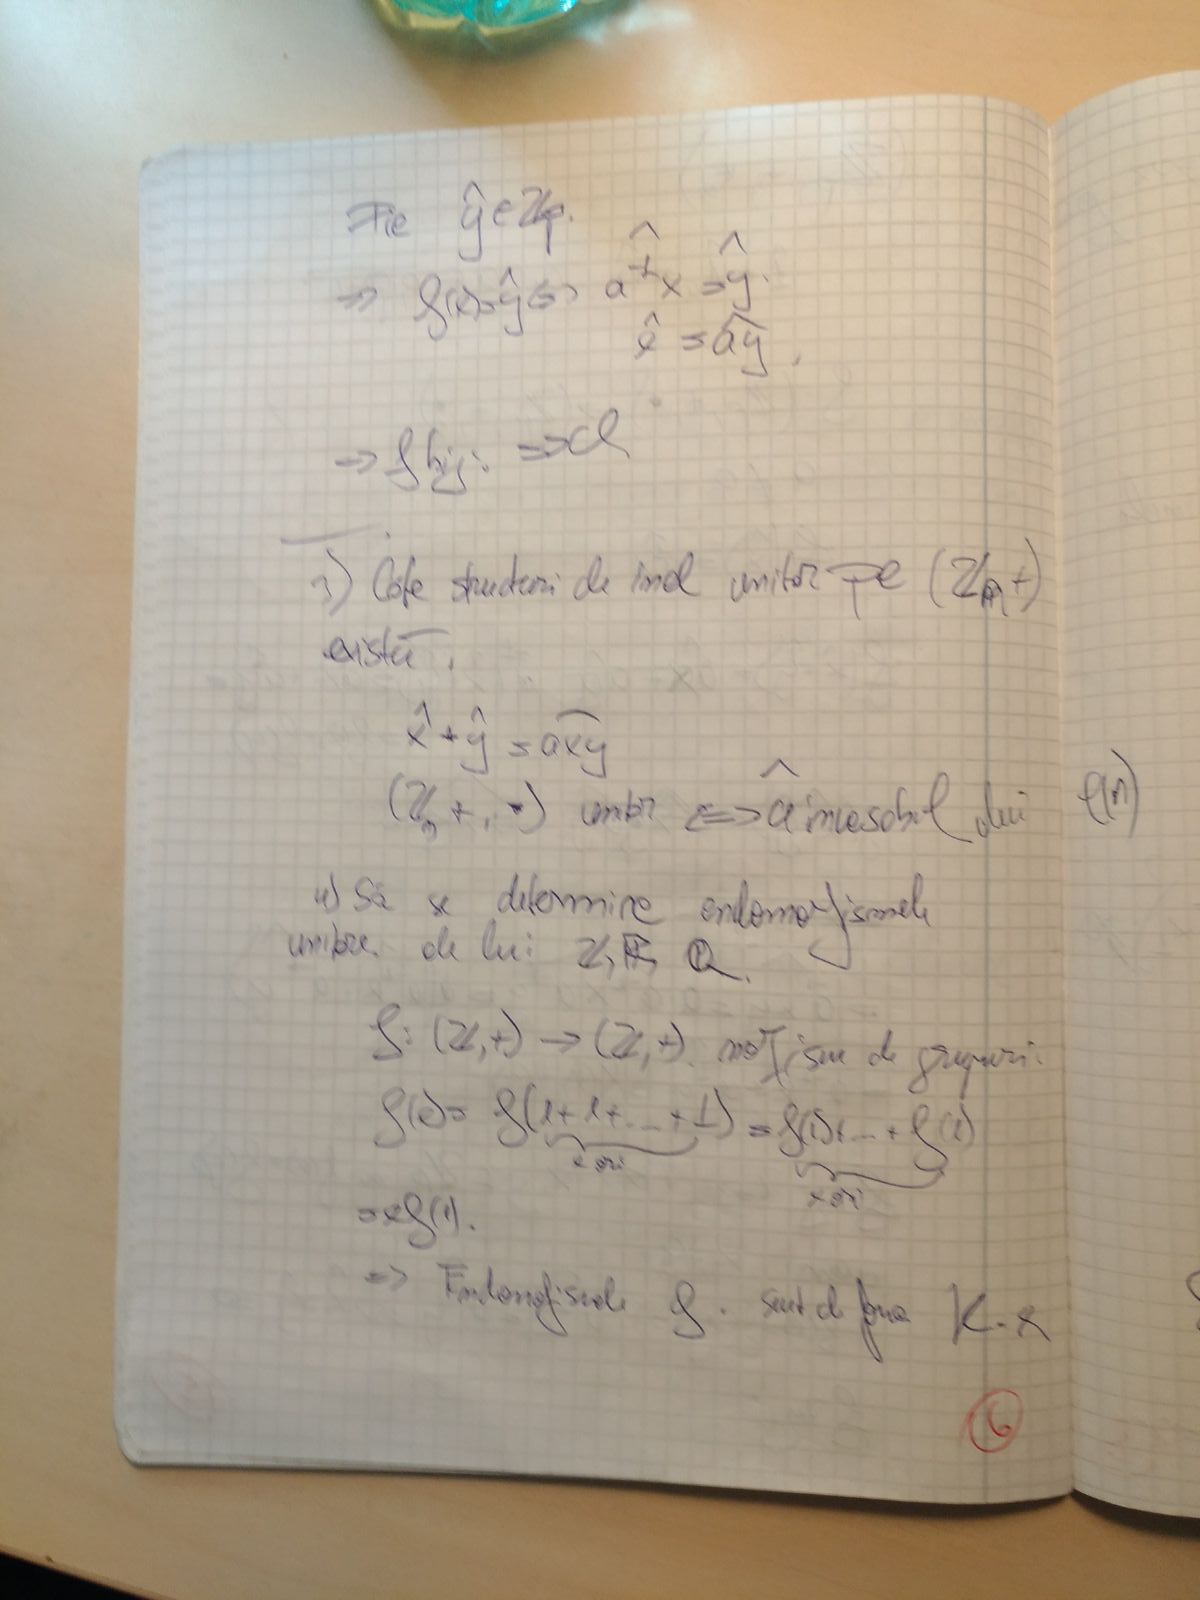 Fie ŷ ∈ ℤp.
⇒ f(x) = ŷ ⇔ a⁻¹x = ŷ.
x̂ = ay,
⇒ f bij.
3) Câte structuri de inel unitar pe (ℤn, +)
există.
x̂ * ŷ = axy
(ℤn, +, *) unitar ⇔ â inversabil φ(n)
4) Să se determine endomorfismele
unitare de lui ℤ, ℝ, ℚ.
f: (ℤ, +) → (ℤ, +) morfism de grupuri.
f(x) = f(1+1+...+1) = f(1)+...+f(1)
x ori
x ori
= xf(1).
⇒ Endomorfismele f. sunt de forma K·x
6